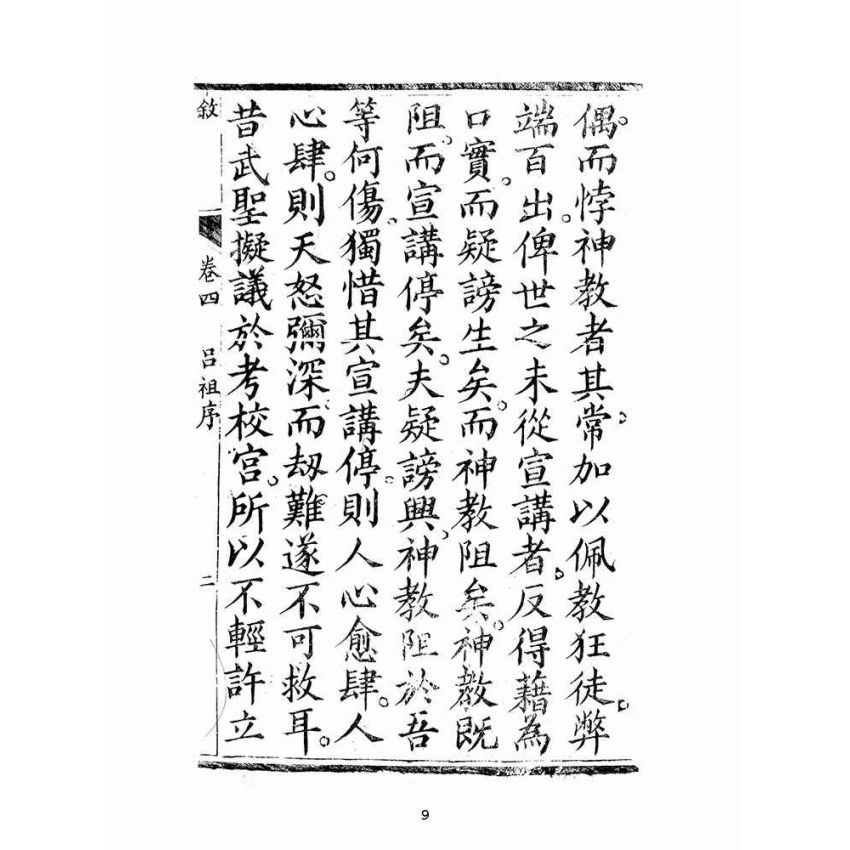 偶。而悖神教者其常。加以佩教狂徒。弊
端百出。俾世之未從宣講者。反得藉為
口實。而疑謗生矣。而神教阻矣。神教既
阻。而宣講停矣。夫疑謗興。神教阻。於吾
等何傷。獨惜其宣講停。則人心愈肆。人
心肆。則天怒彌深。而刼難遂不可救耳。
昔武聖擬議於考校宮。所以不輕許立
敘 卷四 呂祖序 二
9